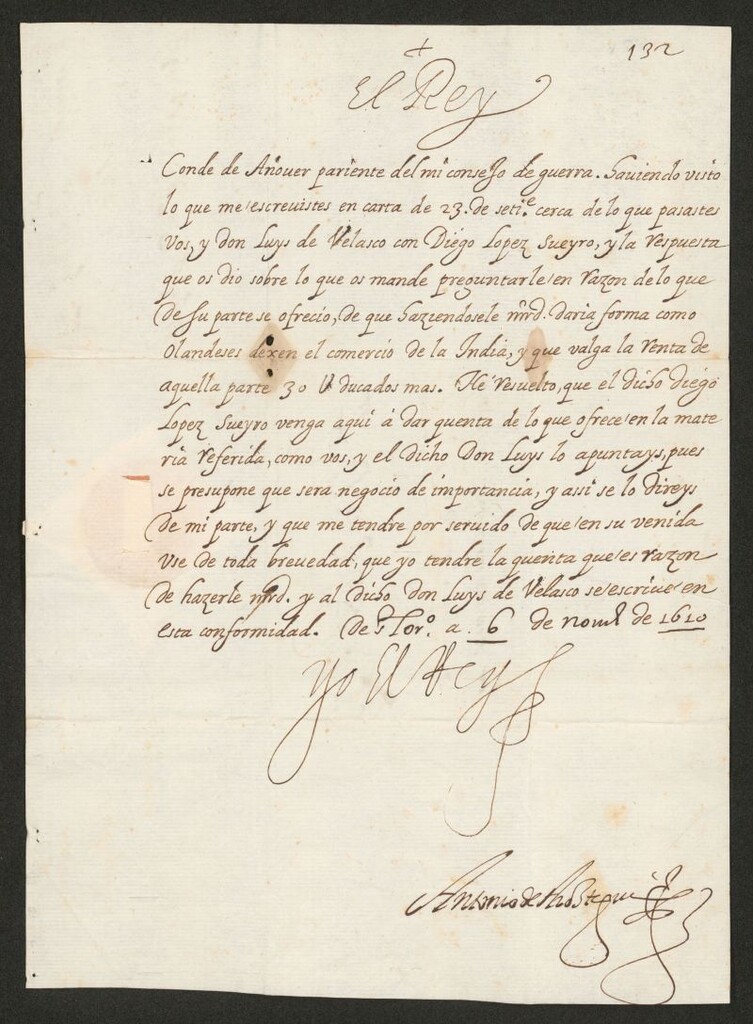 132
+
El Rey
Conde de Añouer pariente del mi consejo de guerra. Hauiendo visto
lo que me escreuistes en carta de 23. de seti.e cerca de lo que pasastes
vos, y don Luys de Velasco con Diego Lopez Sueyro, y la respuesta
que os dio sobre lo que os mande preguntarle en razon de lo que
de su parte se ofrecio, de que haziendosele mrd. daria forma como
Olandeses dexen el comercio de la India, y que valga la renta de
aquella parte 30 U ducados mas. He resuelto, que el dicho diego
Lopez Sueyro venga aqui à dar quenta de lo que ofrece en la mate
ria referida, como vos, y el dicho Don Luys lo apuntays, pues
se presupone que sera negocio de importancia, y assi se lo direys
de mi parte, y que me tendre por seruido de que en su venida
vse de toda breuedad, que yo tendre la quenta que es razon
de hazerle mrd. y al dicho don Luys de Velasco se escriue en
esta conformidad. De s. Lor.o a 6 de nou.e de 1610
yo El Rey
Antonio de Arostegui